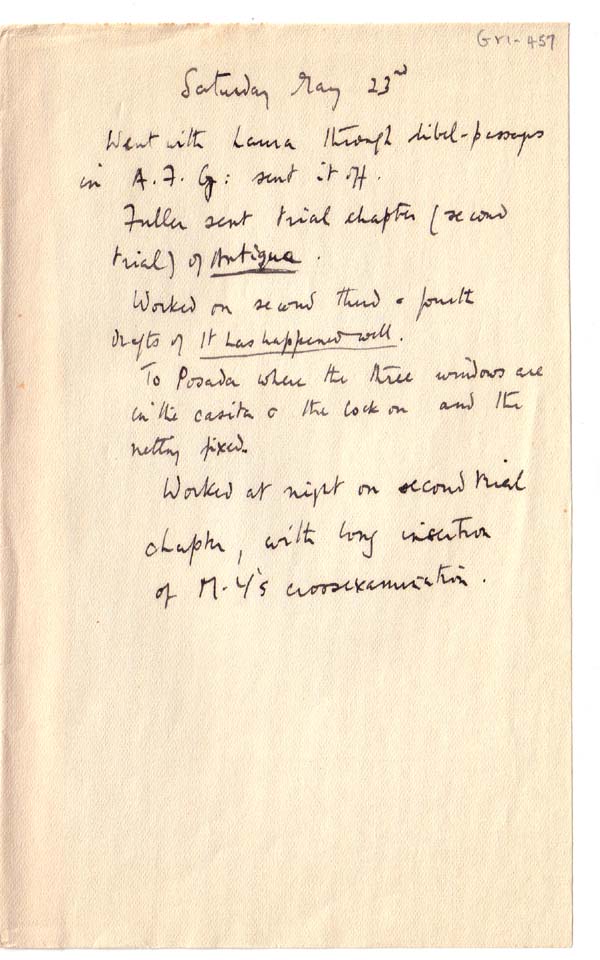 GRI-457
Saturday May 23rd
Went with Laura through libel-passages
in A.F.Cy: sent it off.
Fuller sent trial chapter (second
trial) of Antigua.
Worked on second third & fourth
drafts of It has happened well.
To Posada where the three windows are
in the casita & the lock on and the
netting fixed.
Worked at night on second trial
chapter, with long insertion
of M-Y's crossexamination.